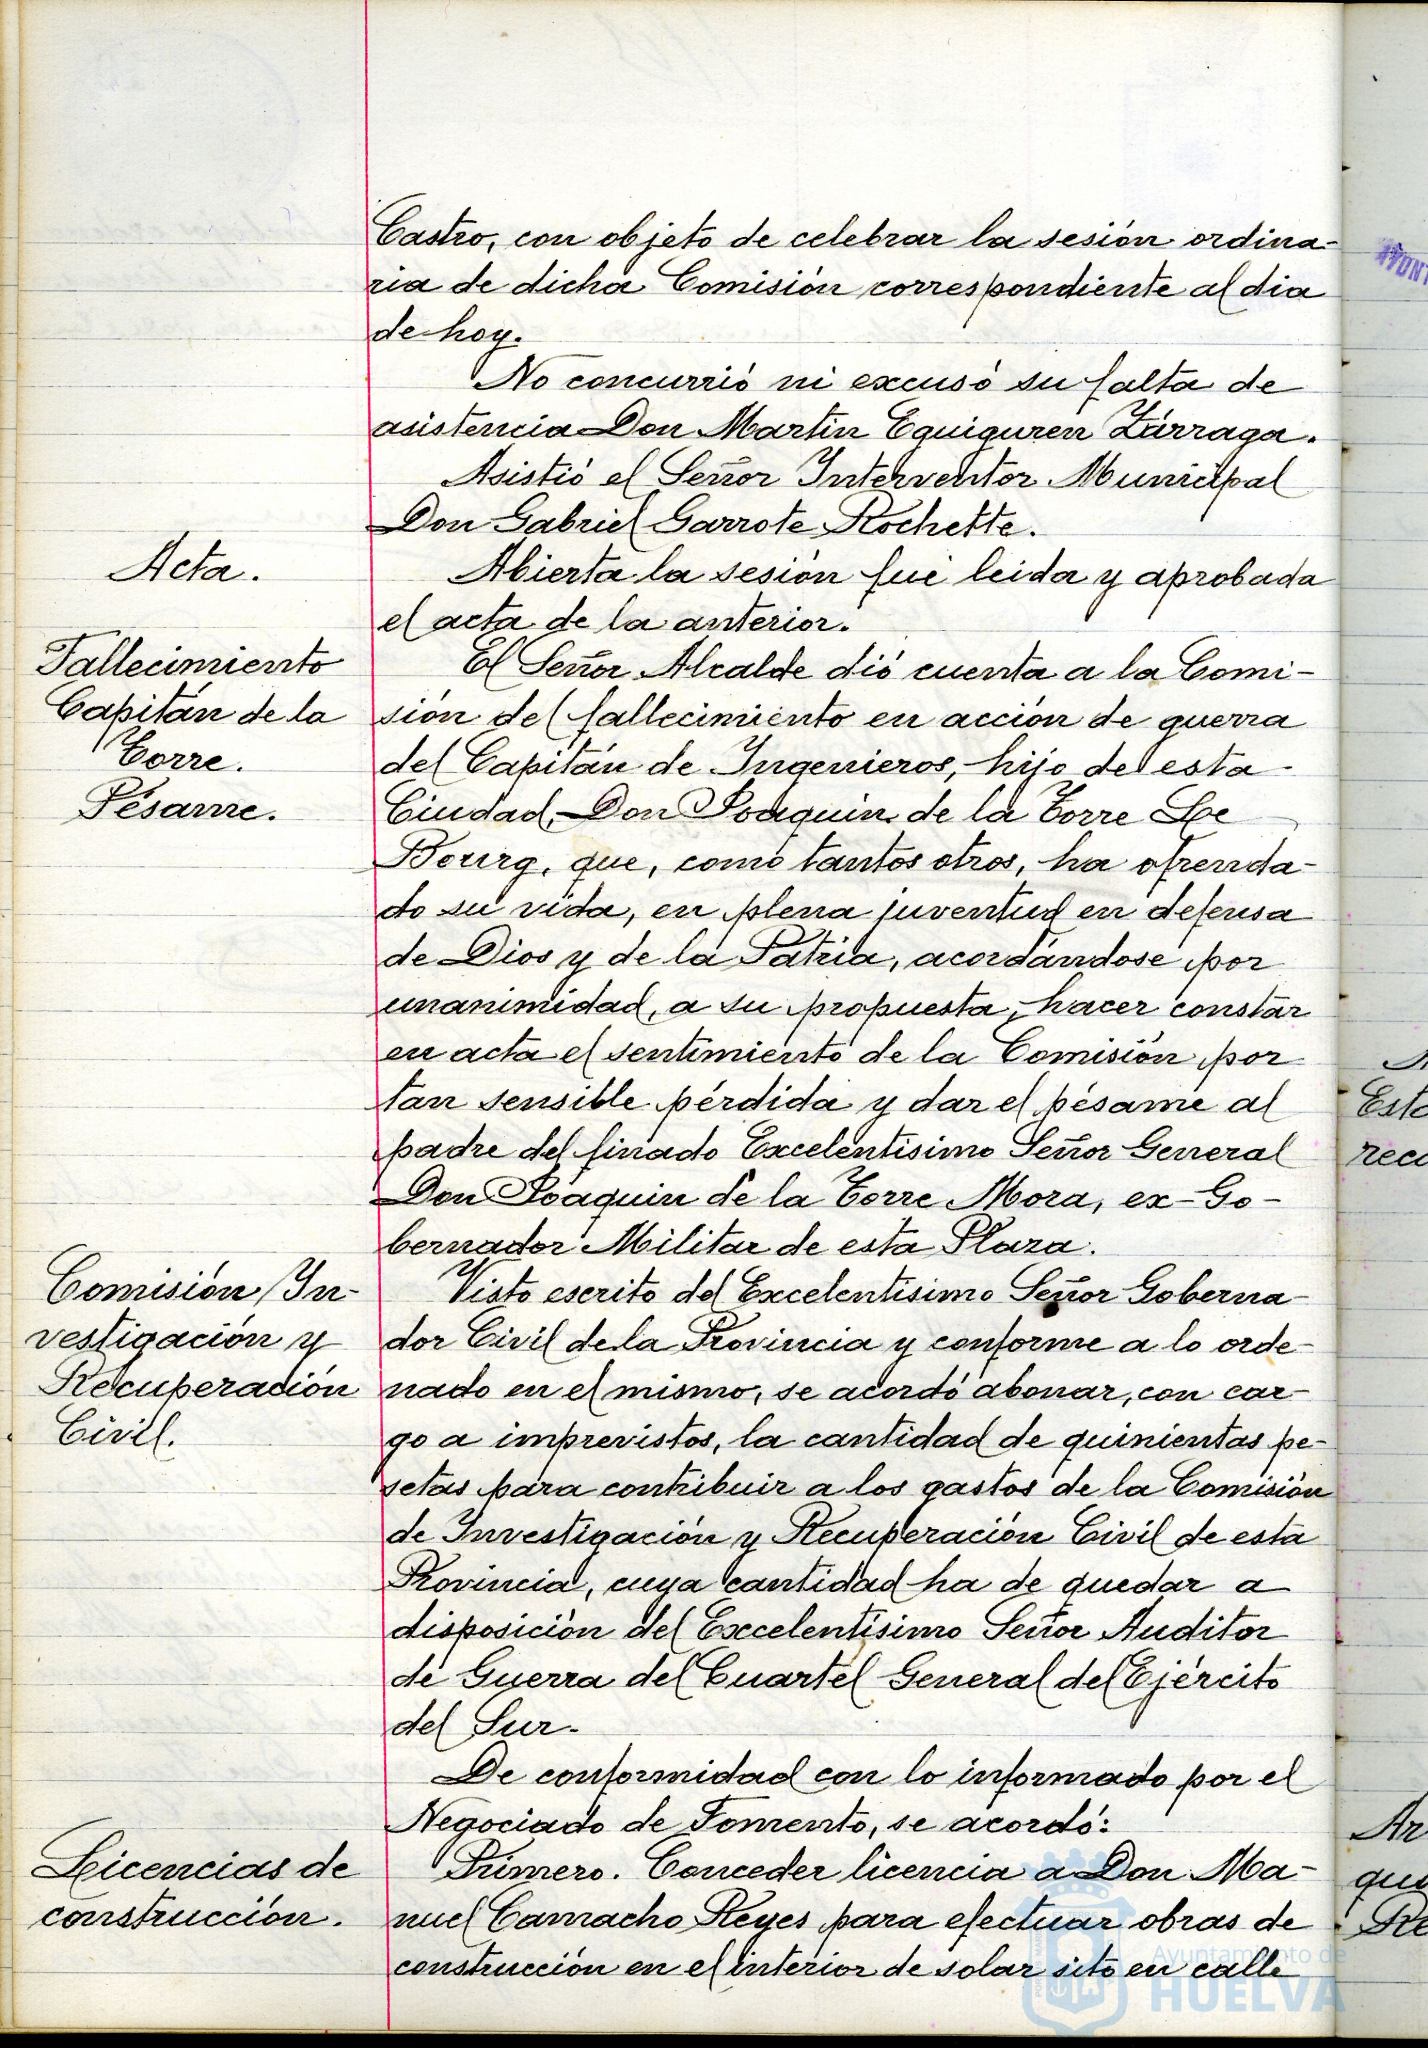 Castro, con objeto de celebrar la sesión ordina-
ria de dicha Comisión correspondiente al dia
de hoy.
No concurrió ni excusó su falta de
asistencia Don Martin Eguiguren Zárraga.
Asistió el Señor Interventor Municipal
Don Gabriel Garrote Rochette.
Acta.
Abierta la sesión fué leida y aprobada
el acta de la anterior.
Fallecimiento
Capitán de la
Torre.
Pésame.
El Señor Alcalde dió cuenta a la Comi-
sión del fallecimiento en acción de guerra
del Capitán de Ingenieros, hijo de esta
Ciudad, Don Joaquin de la Torre Le
Bourg, que, como tantos otros, ha ofrenda-
do su vida, en plena juventud en defensa
de Dios y de la Patria, acordándose por
unanimidad, a su propuesta, hacer constar
en acta el sentimiento de la Comisión por
tan sensible pérdida y dar el pésame al
padre del finado Excelentísimo Señor General
Don Joaquin de la Torre Mora, ex-Go-
bernador Militar de esta Plaza.
Comisión In-
vestigación y
Recuperación
Civil.
Visto escrito del Excelentísimo Señor Goberna-
dor Civil de la Provincia y conforme a lo orde-
nado en el mismo, se acordó abonar, con car-
go a imprevistos, la cantidad de quinientas pe-
setas para contribuir a los gastos de la Comisión
de Investigación y Recuperación Civil de esta
Provincia, cuya cantidad ha de quedar a
disposición del Excelentísimo Señor Auditor
de Guerra del Cuartel General del Ejército
del Sur.
De conformidad con lo informado por el
Negociado de Fomento, se acordó:
Licencias de
construcción.
Primero. Conceder licencia a Don Ma-
nuel Camacho Reyes para efectuar obras de
construcción en el interior de solar sito en calle
Ayuntamiento de
HUELVA